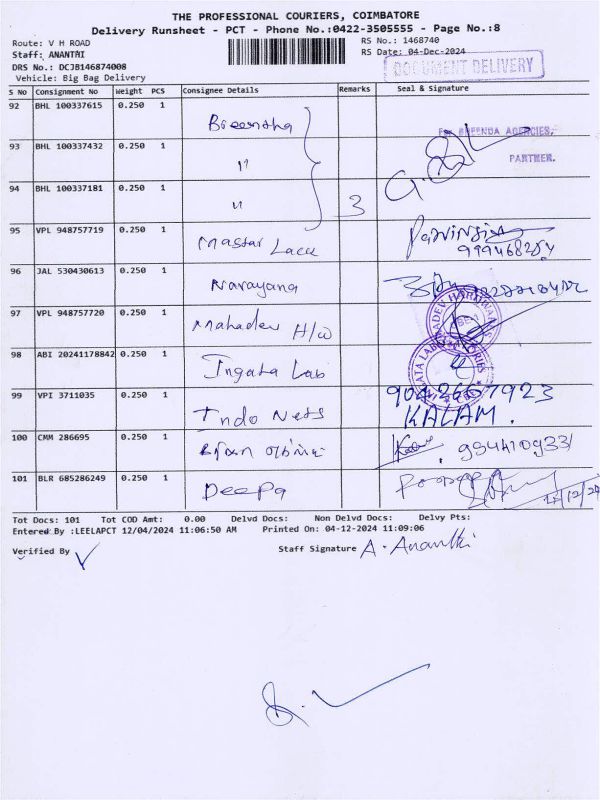 THE PROFESSIONAL COURIERS, COIMBATORE
Delivery Runsheet - PCT - Phone No.:0422-3505555 - Page No.:8
Route: V H ROAD
RS No.: 1468740
Staff: ANANTHI
RS Date: 04-Dec-2024
DRS No.: DCJB146874008
DOCUMENT DELIVERY
Vehicle: Big Bag Delivery
S No Consignment No Weight PCS Consignee Details Remarks Seal & Signature
92 BHL 100337615 0.250 1
AGENCIES,
93 BHL 100337432 0.250 1 "
PARTNER.
94 BHL 100337181 0.250 1 " 3
95 VPL 948757719 0.250 1 Master
96 JAL 530430613 0.250 1 Narayana
97 VPL 948757720 0.250 1 Mahadev H/w
98 ABI 20241178842 0.250 1 Ingata Lab
99 VPI 3711035 0.250 1 Indo Nets
KALAM.
100 CMM 286695 0.250 1
101 BLR 685286249 0.250 1 Deepa
Tot Docs: 101 Tot COD Amt: 0.00 Delvd Docs: Non Delvd Docs: Delvy Pts:
Entered By :LEELAPCT 12/04/2024 11:06:50 AM Printed On: 04-12-2024 11:09:06
Verified By Staff Signature A. Ananthi